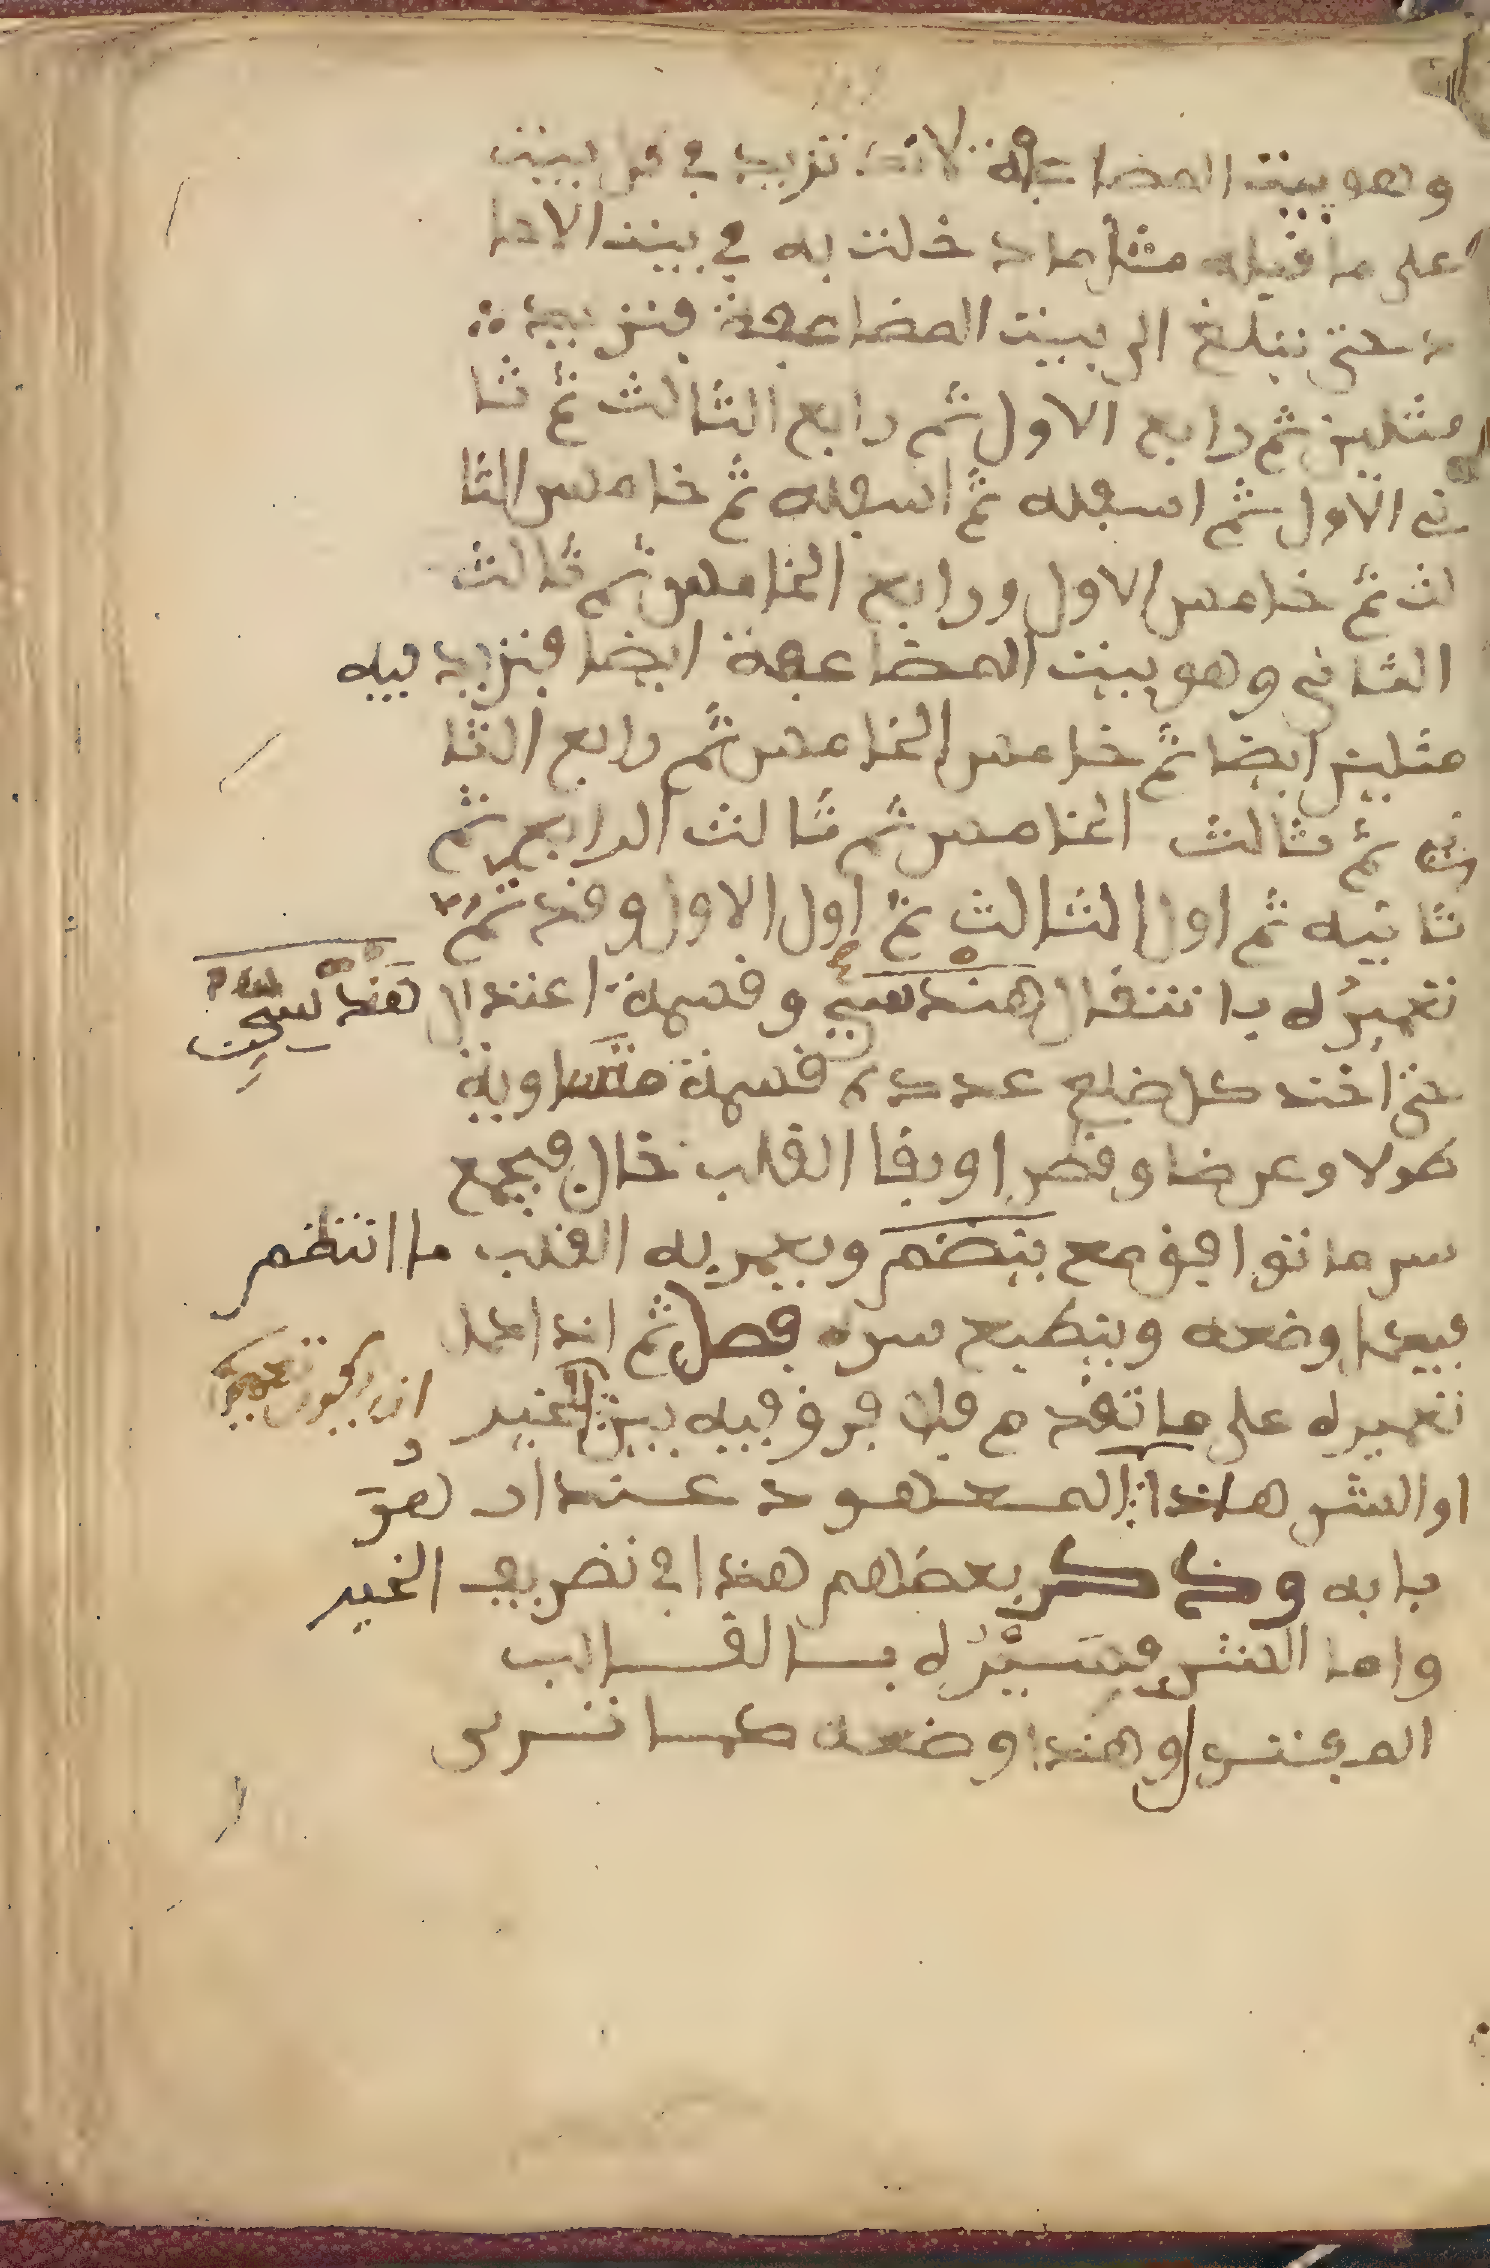 وهو بيت المضاعفة لانك تزيد في كل بيت
على ما قبله مثل ما دخلت به في بيت الاحا
د حتى تبلغ الى بيت المضاعفة فتزيد
مثلين ثم رابع الاول ثم رابع الثالث ثم ثا
ني الاول ثم اسفله ثم اسفله ثم خامس الثا
لث ثم خامس الاول ورابع الخامس ثم ثالث
الثاني وهو بيت المضاعفة ايضا فتزيد فيه
مثلين ايضا ثم خامس الخامس ثم رابع الثا
ني ثم ثالث الخامس ثم ثالث الرابع ثم
ثانيه ثم اول الثالث ثم اول الاول وقد تم
تعميره بانتقال هندسي وقسمة اعتدال هندسي
حتى اخذ كل ضلع عدده قسمة متساوية
طولا وعرضا وقطرا وبقا القلب خال فيجمع
سر ما توافق مع بتضم ويعمر به القلب ما انتظم
فيه وضعه وينطبع سره فصل ثم اذا كمل
تعميره على ما تقدم فلا فرق فيه بين الخير
او الشر هذا المعهود عند ار هو
بابه وذكر بعضهم هذا في تصريف الخير
واما الشر فسيره بالقالب
المفتي وهذا وضعه كما ترى